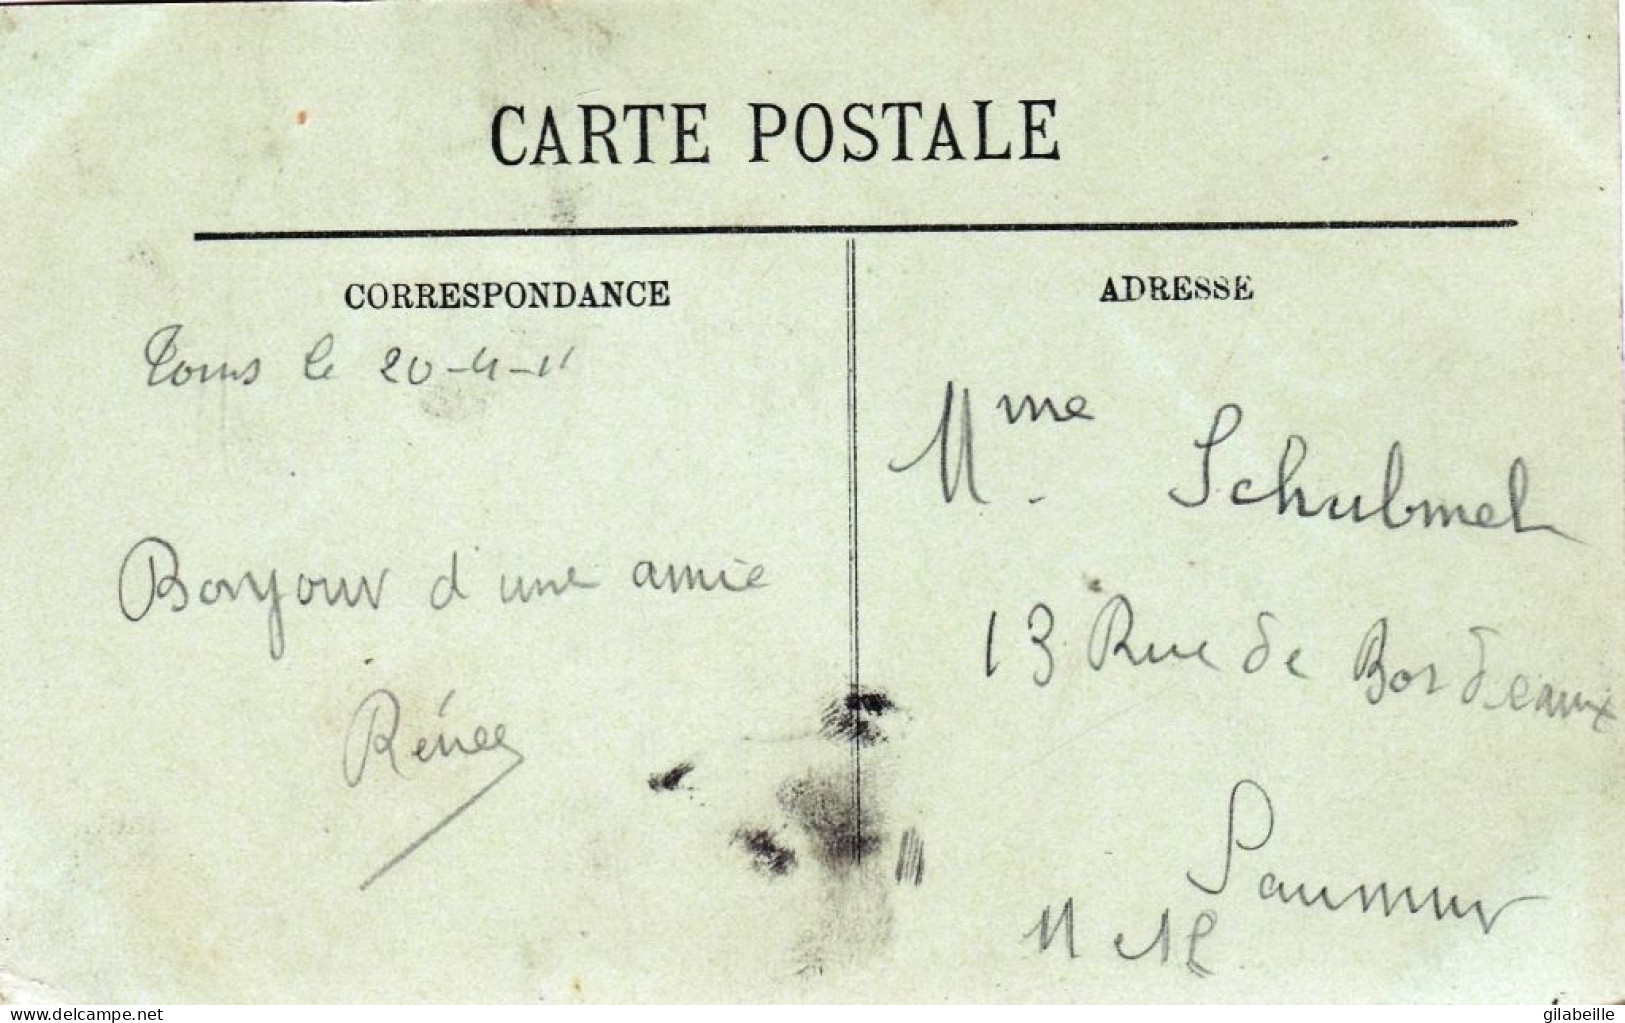 CARTE POSTALE
CORRESPONDANCE
ADRESSE
Tours le 20-4-11
Bonjour d'une amie
Rénée
Mme Schubmel
13 Rue de Bordeaux
Saumur
M et L
www.delcampe.net
gilabeille